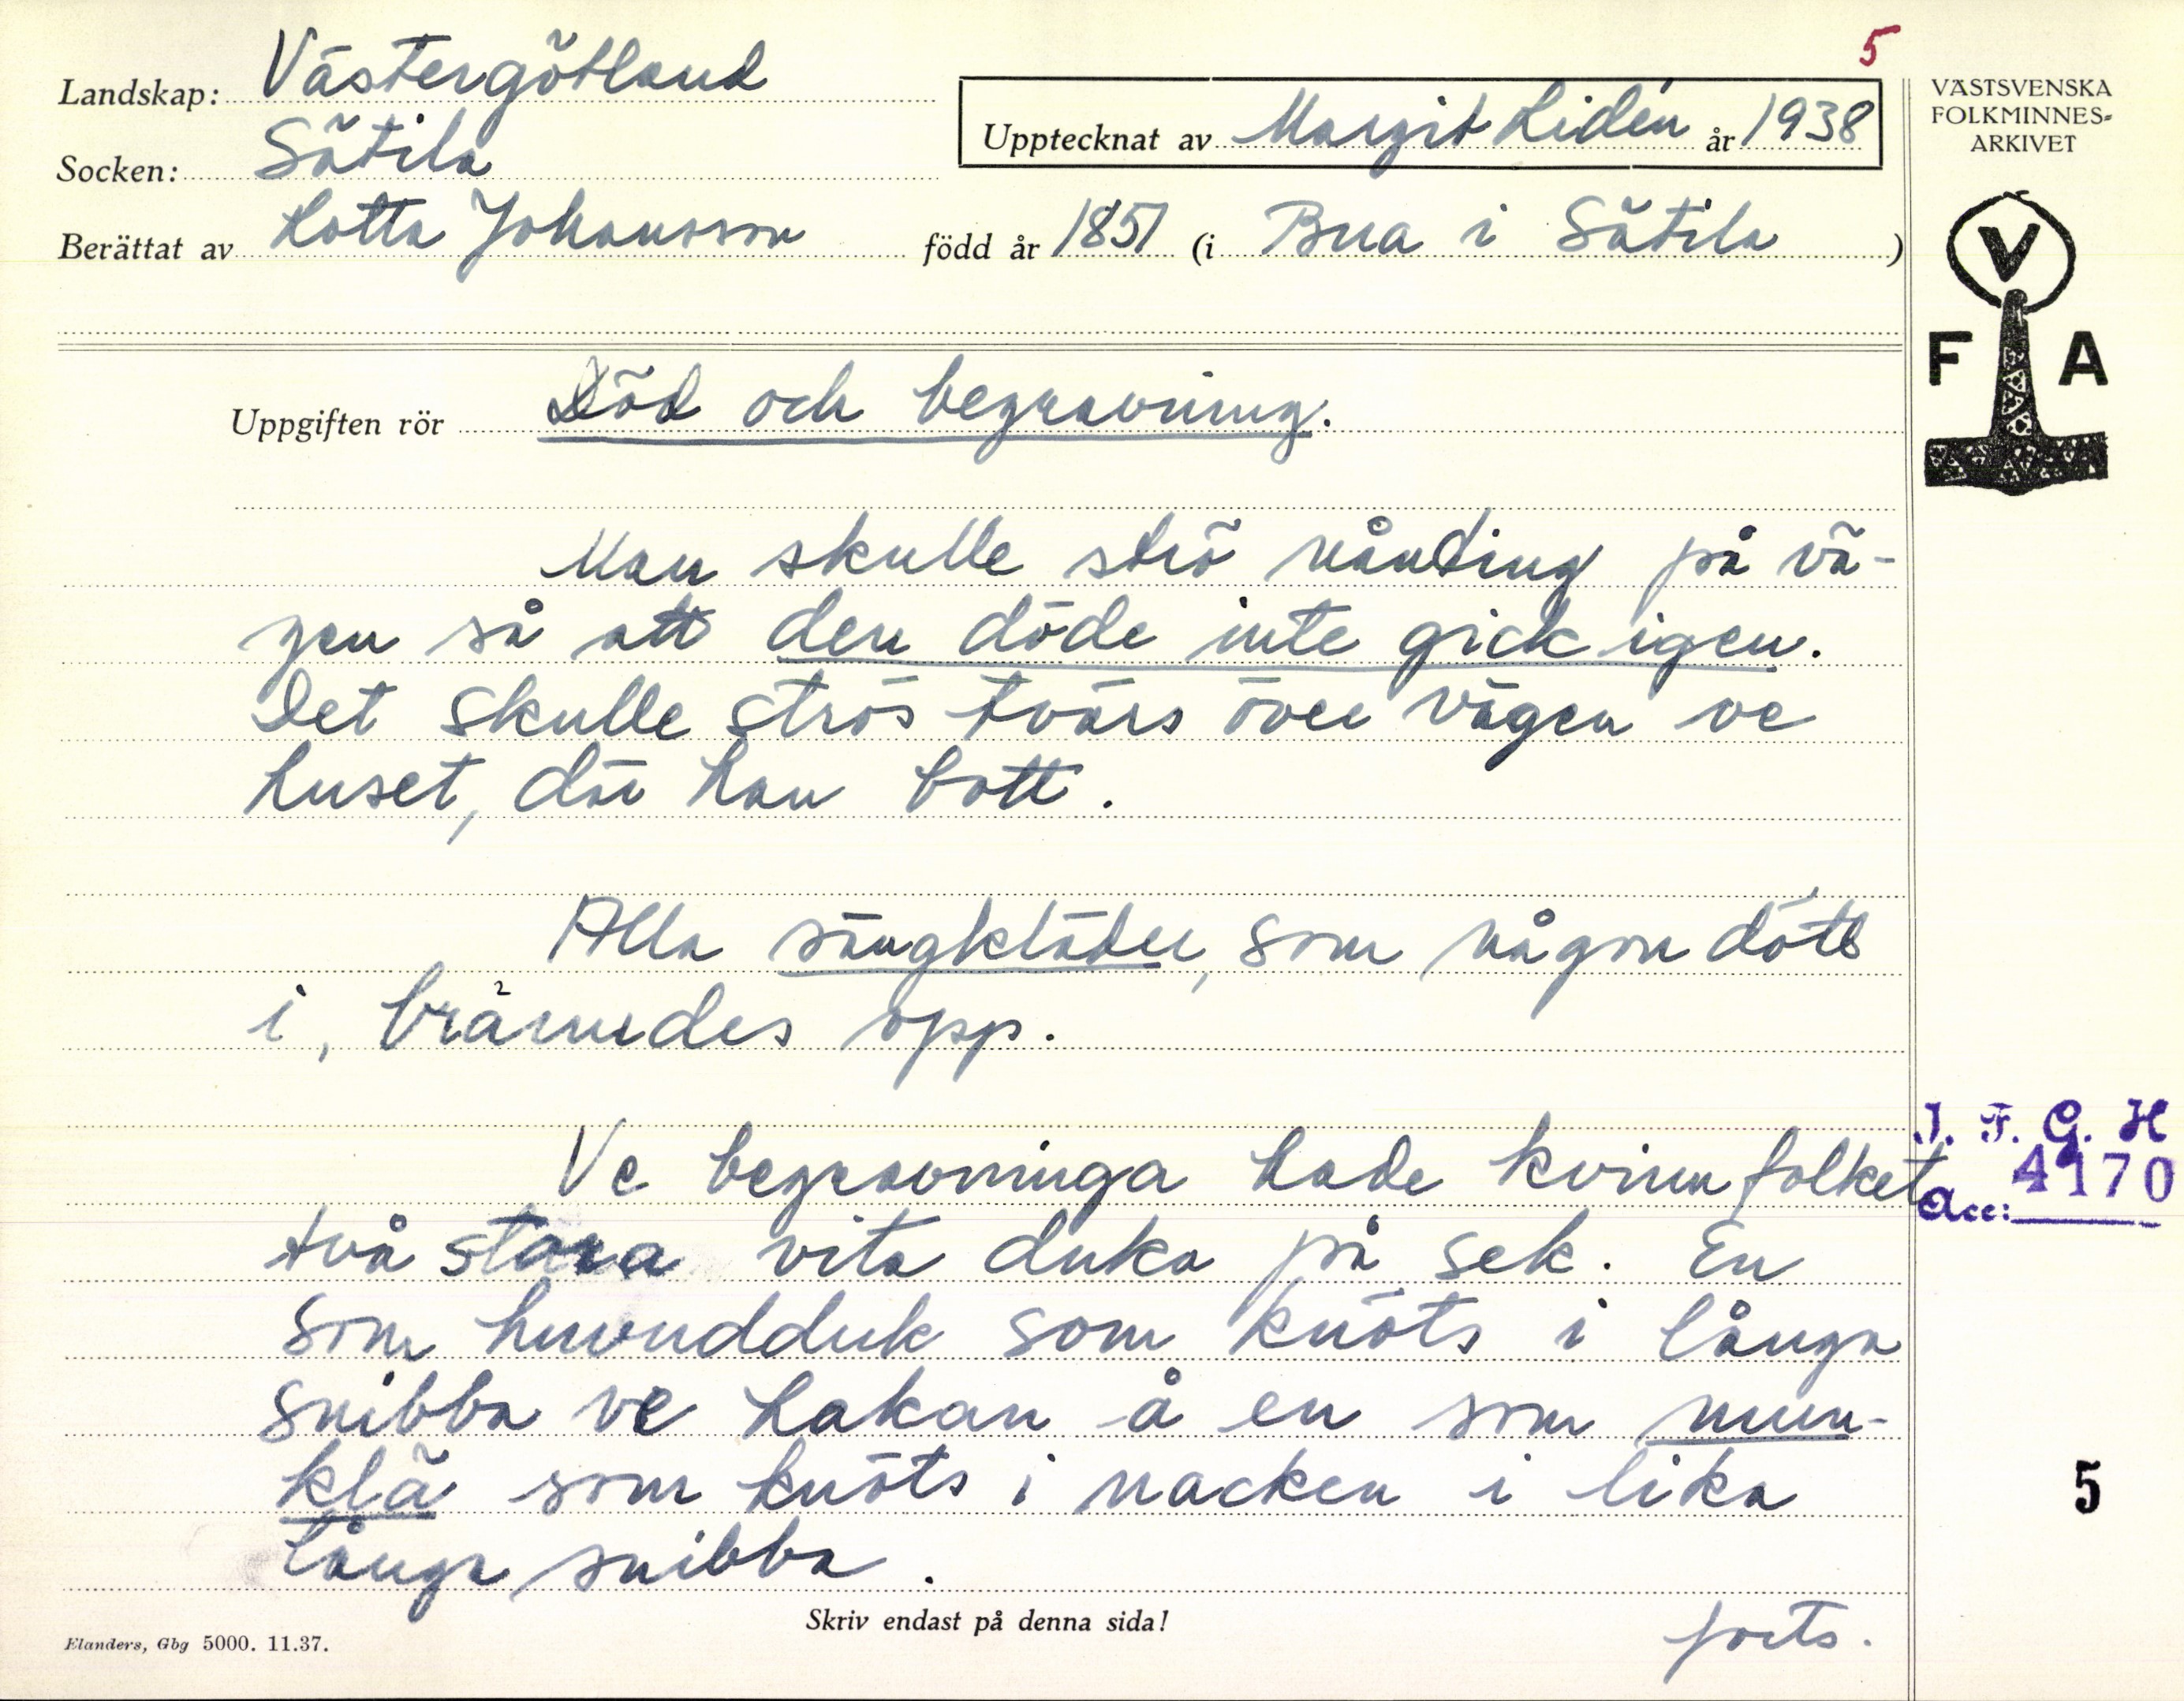 5
Landskap: Västergötland
Socken: Sätila
Upptecknat av Margit Lidén år 1938
Berättat av Lotta Johansson född år 1851 (i Bua i Sätila )
VÄSTSVENSKA
FOLKMINNES=
ARKIVET
V
F A
Uppgiften rör Död och begravning.
Man skulle strö nånting på vä-
gen så att den döde inte gick igen.
Det skulle strös tvärs över vägen ve
huset, där han bott.
Alla sängkläder, som någon dött
i, brändes opp.
Ve begravninga hade kvinnfolket
två stora vita duka på sek. En
som huvudduk som knöts i långa
snibba ve hakan å en som mun-
klä som knöts i nacken i lika
långa snibba.
I. F. G. H
Acc: 4170
5
Skriv endast på denna sida!
forts.
Elanders, Gbg 5000. 11.37.